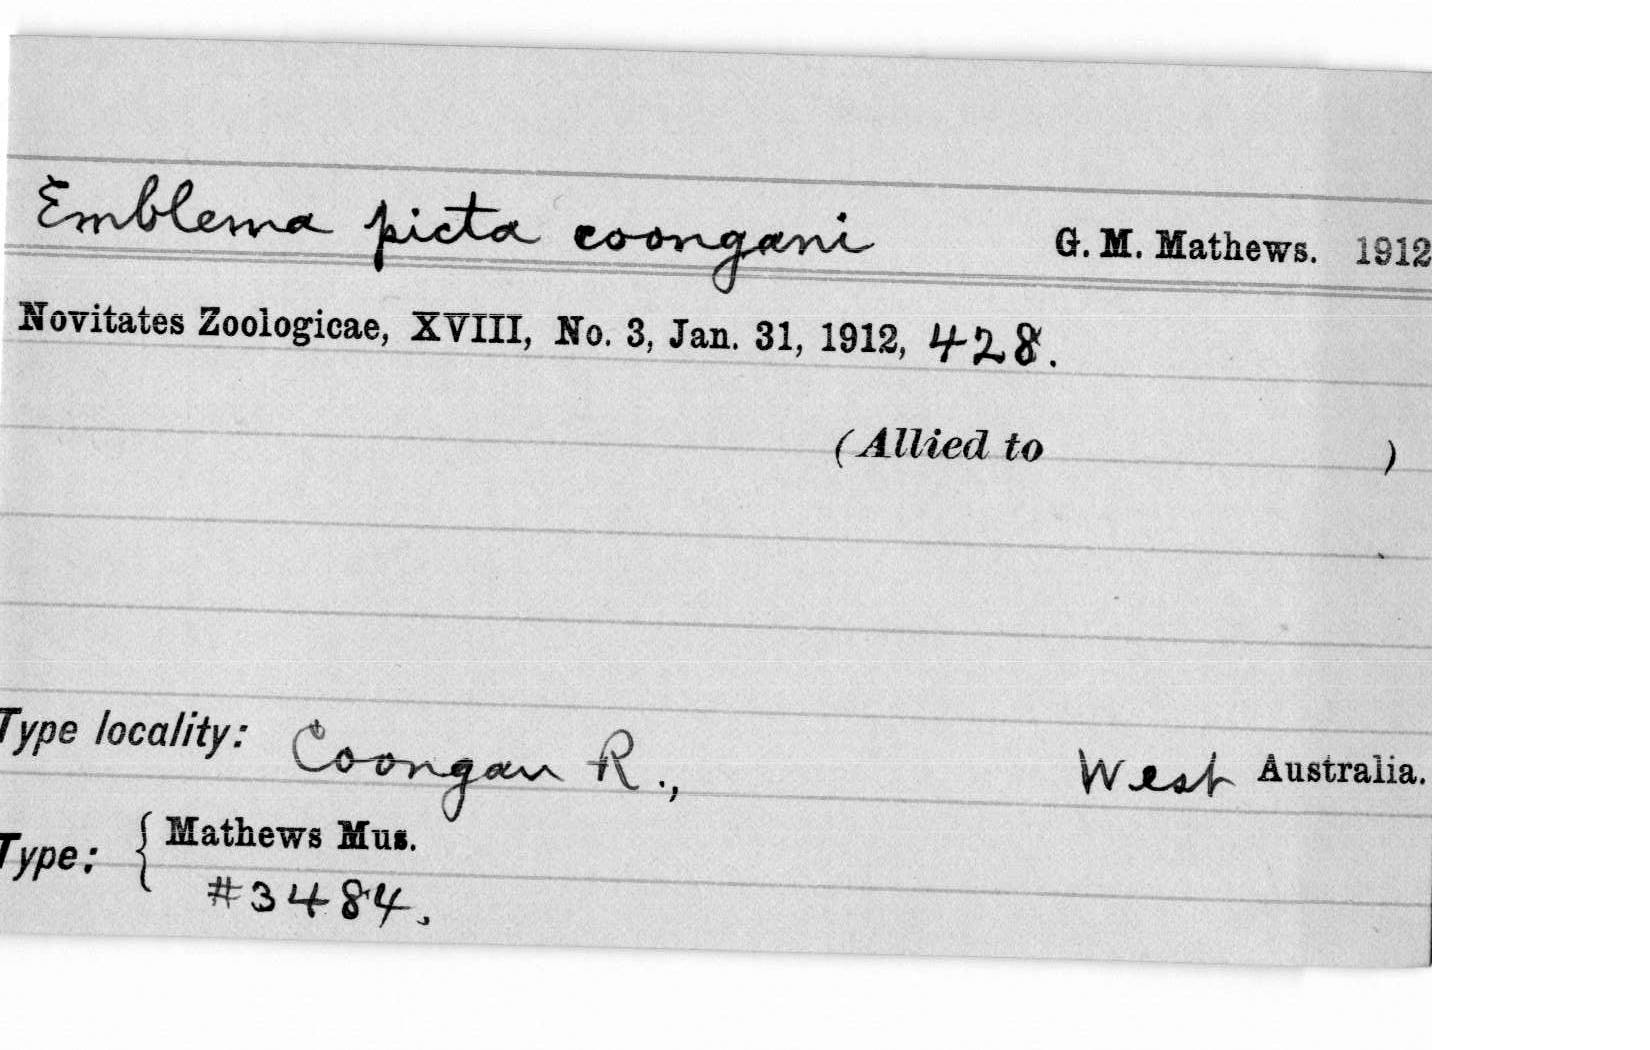 Emblema picta coongani G. M. Mathews. 1912
Novitates Zoologicae, XVIII, No. 3, Jan. 31, 1912, 428.
(Allied to )
Type locality: Coongan R., West Australia.
Type: { Mathews Mus.
#3484.